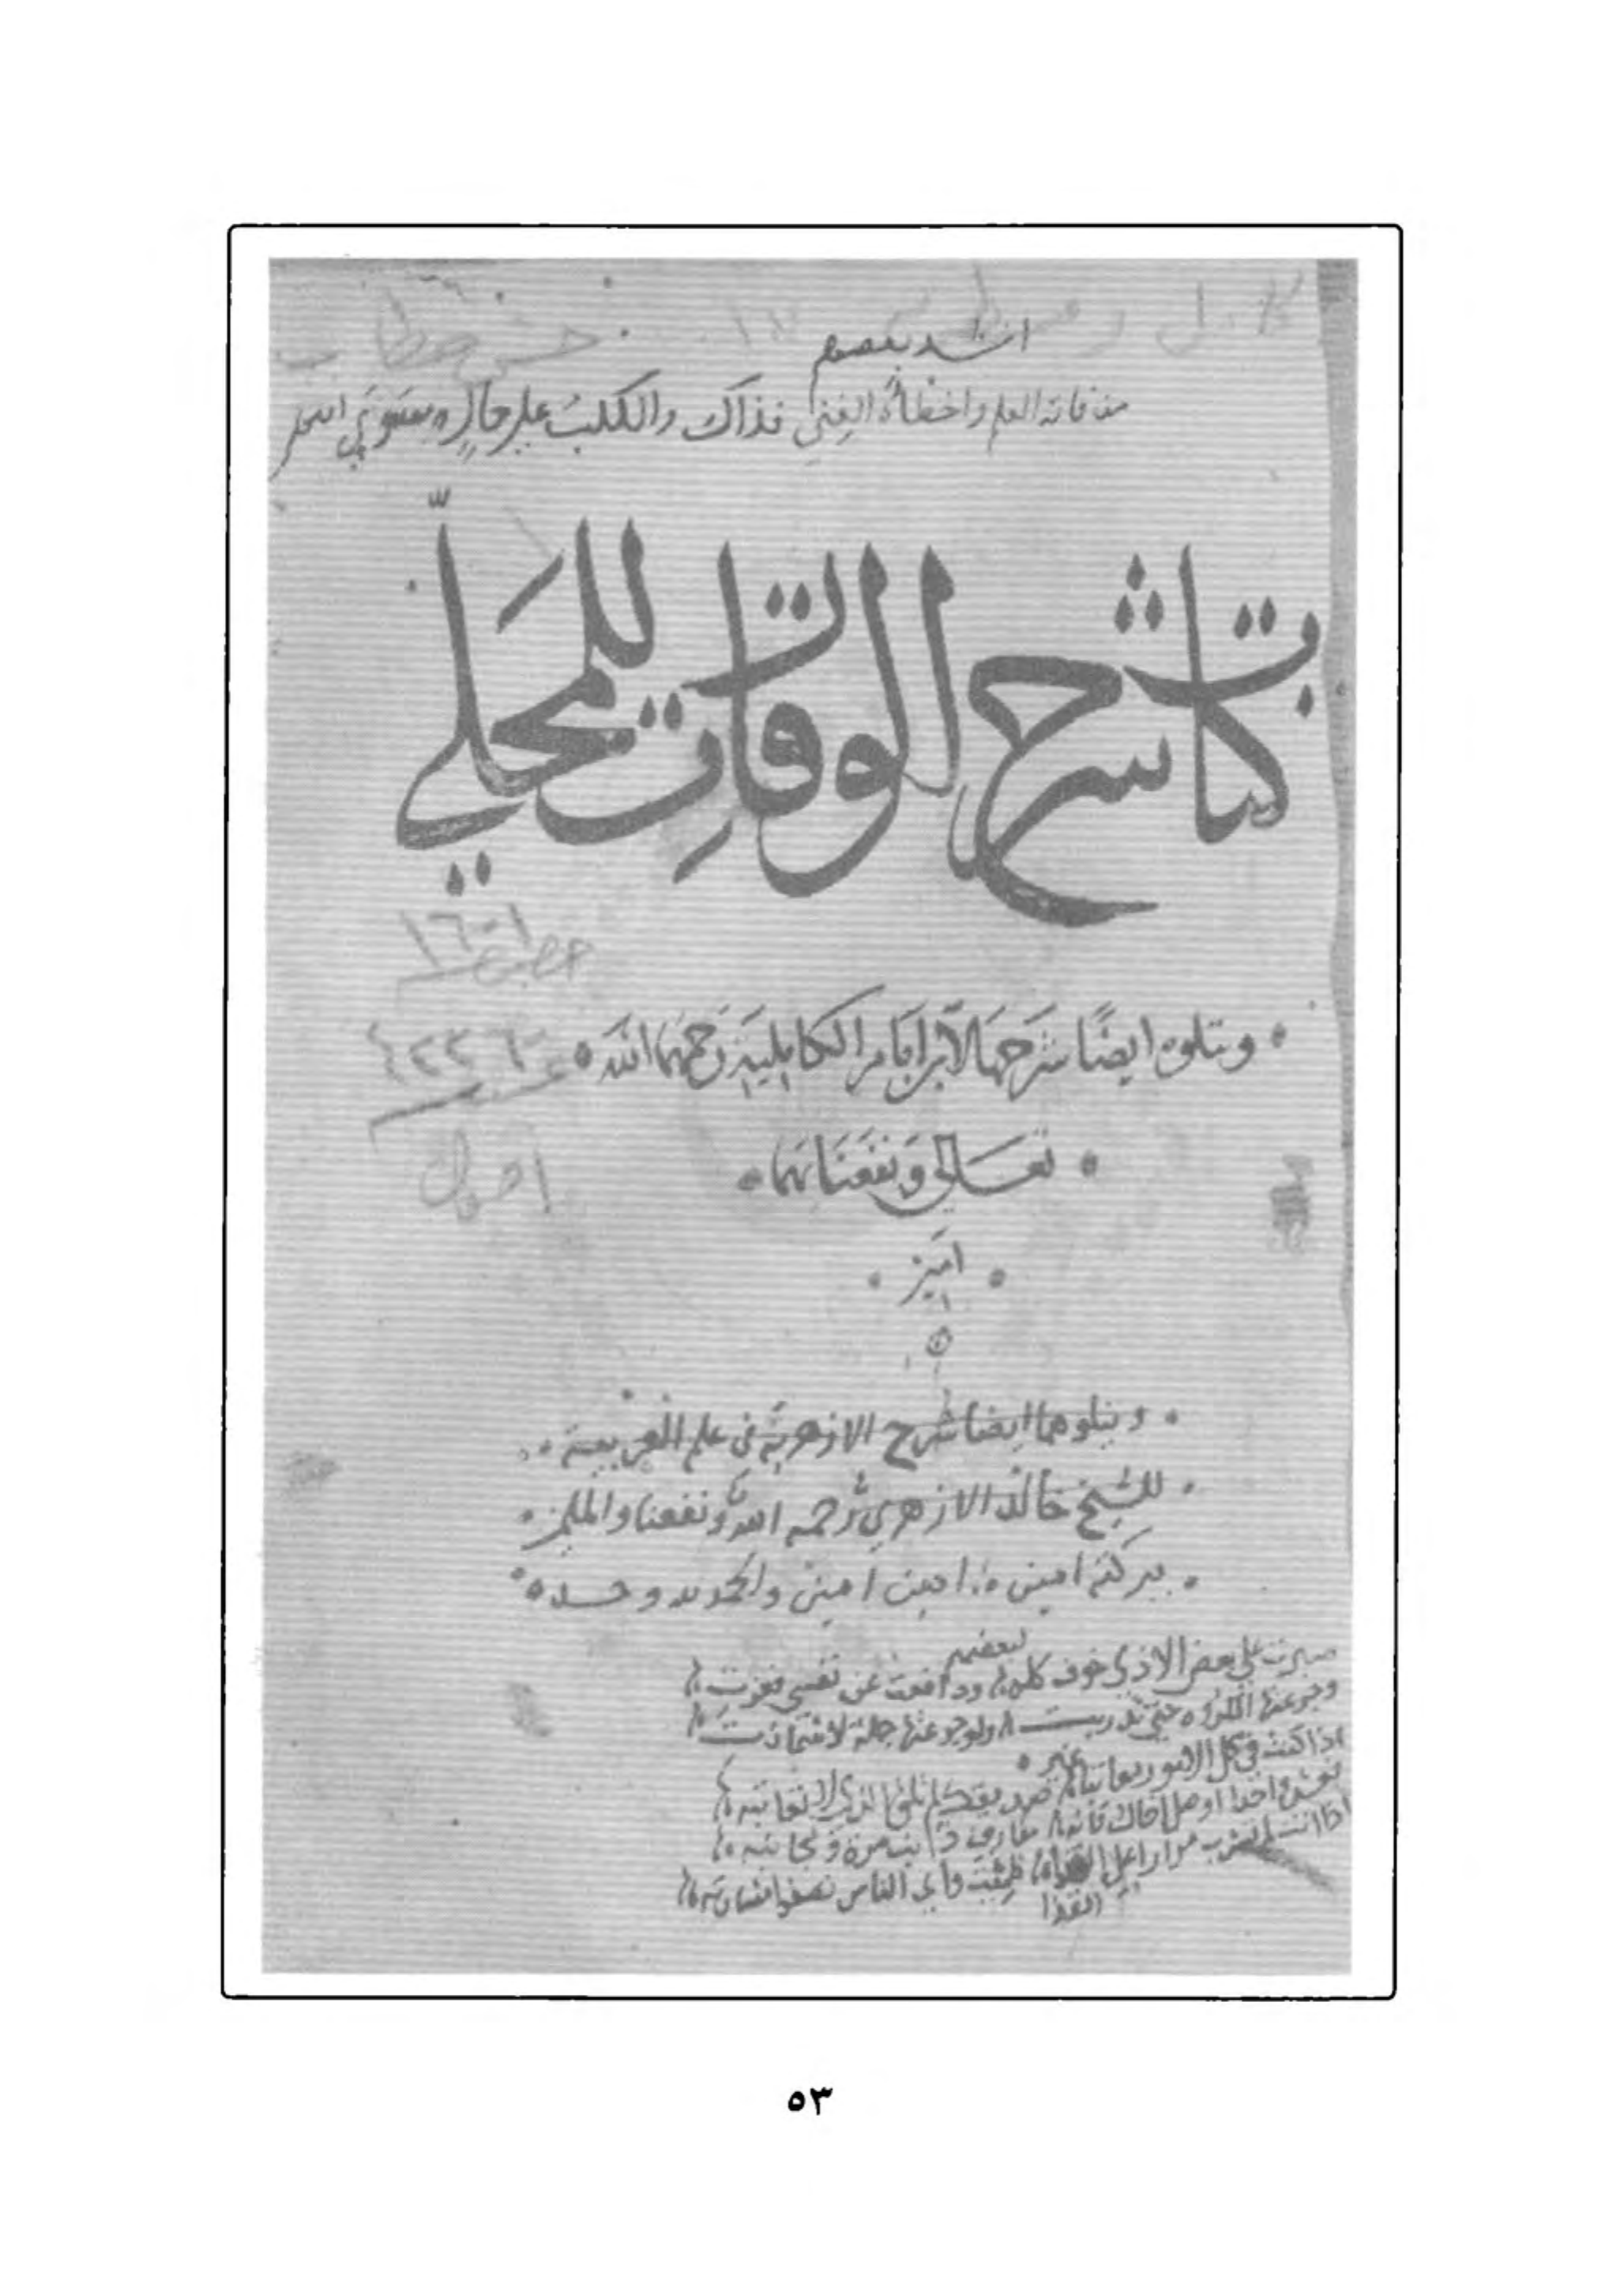 انشد بعضهم
من فاته العلم واخطاه الغنى فذاك والكلب على حال
كتاب شرح الورقات للمحلي
١٦
ويتلوه ايضًا شرحها لابن امام الكاملية رحمهما الله
تعالى ونفعنا بهما
امين
ويتلوهما ايضا شرح الازهرية في علم العربية
للشيخ خالد الازهري رحمه الله ونفعنا والمسلمين
ببركته امين امين امين والحمد لله وحده
لبعضهم
صبرت على بعض الاذى خوف كله ودافعت عن نفسي لنفسي فعزت
وجرعتها المكروه حتى تدربت ولو جرعته جملة لاشمأزت
غيره
اذا كنت في كل الامور معاتبا صديقك لم تلق الذي لا تعاتبه
فعش واحدا او صل اخاك فانه مقارف ذنب مرة ومجانبه
اذا انت لم تشرب مرارا على القذا ظمئت واي الناس تصفو مشاربه
القذا
٥٣